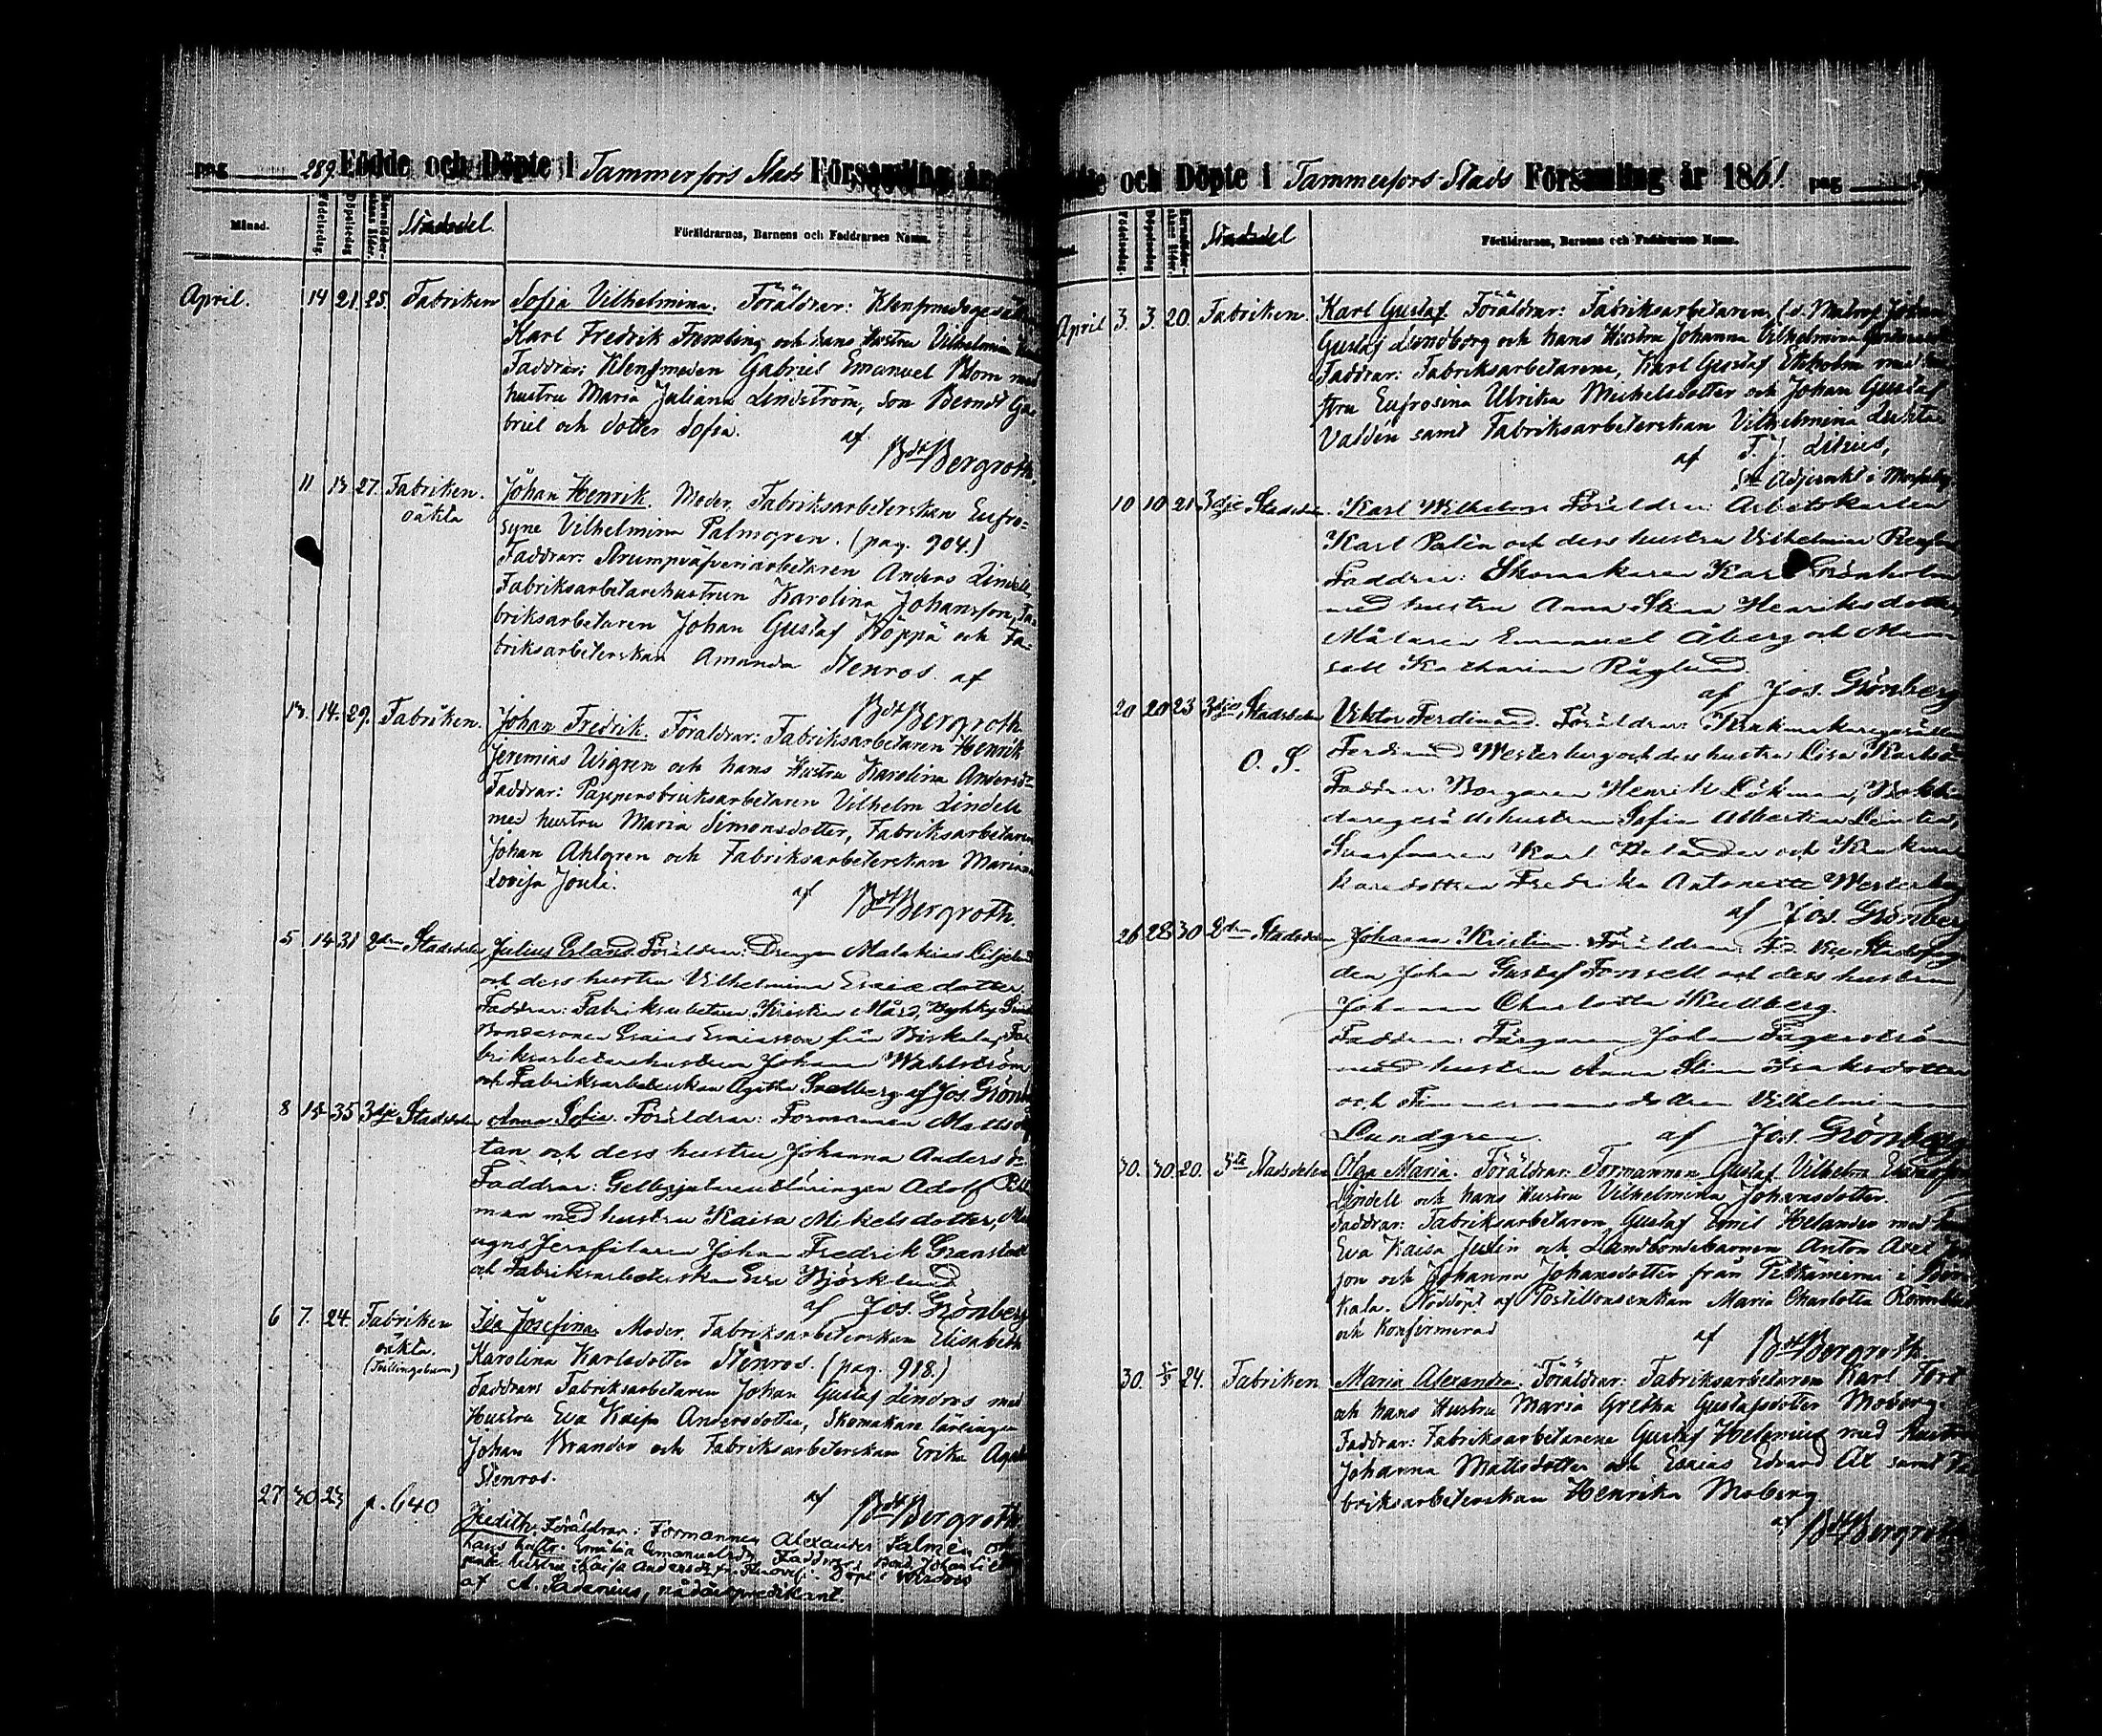 pag 289 Födde och Döpte i Tammerfors Stads Församling år
Månad. Födelsedag Döpelsedag Stadsdel Föräldrarnes, Barnens och Faddrarnes Namn.
April. 14 21. 25. Fabriken Sofia Vilhelmina. Föräldrar:
Karl Fredrik och hans Hustru Vilhelmina
Faddrar: Klensmeden Gabriel Emanuel Blom med
hustru Maria Juliana Lindström, son Berndt Ga-
briel och dotter Sofia. af
Bdt Bergroth.
11 13 27. Fabriken. Johan Henrik. Moder, Fabriksarbeterskan Eufro-
oäkta syne Vilhelmina Palmgren. (pag. 904.)
Faddrar: Strumpväfveriarbetaren Anders Lindell,
Fabriksarbetarehustrun Karolina Johansson, Fa-
briksarbetaren Johan Gustaf Köppä och Fa-
briksarbeterskan Amanda Stenros. af
Bdt Bergroth.
13. 14. 29. Fabriken. Johan Fredrik. Föräldrar: Fabriksarbetaren Henrik
Jeremias Wigren och hans Hustru Karolina Andersdr
Faddrar: Pappersbruksarbetaren Vilhelm Lindell
med hustru Maria Simonsdotter, Fabriksarbetaren
Johan Ahlgren och Fabriksarbeterskan Mariana
Lovisa Jouli. af Bdt Bergroth.
5 14 31 2dra Stadsdelen Julius Erland. Föräldrar: Drengen Malakias
och dess hustru Vilhelmina Esaiædotter.
Faddrar: Fabriksarbetaren Kristian Mård,
Bondesonen Esaias Esaiasson från Birkala, Fa-
briksarbetarehustrun Johanna Wahlström
och Fabriksarbeterskan Agatha af Jos. Grönb
8 14 35 3dje Stadsdelen Anna Sofia. Föräldrar: Formannen Matts
tan och dess hustru Johanna Anders dr.
Faddrar: Gelbgjutarelärlingen Adolf
man med hustru Kaisa Mikelsdotter,
Johan Fredrik Granstedt
och Fabriksarbeterskan Eva Björklund
af Jos. Grönberg
6 7. 24. Fabriken Ida Josefina. Moder, Fabriksarbeterskan Elisabeth
oäkta. Karolina Karlsdotter Stenros. (pag. 918.)
(Tvillingsbarn) Faddrar: Fabriksarbetaren Johan Gustaf Lindroos med
Hustru Eva Kaisa Andersdotter, Skomakare lärlingen
Johan Brander och Fabriksarbeterskan Erika Agatha
Stenros. af Bdt Bergroth
27 30 23 p. 640 Föräldrar: Formannen Alexander Salmén och
hans hustr. Emilia Emanuelsdr. Faddrar: Bond. Johan
hustru Kaisa Andersdr.
af A. nådårspredikant.
och Döpte i Tammerfors Stads Församling år 1861. pag
Födelsedag. Döpelsedag Stadsdel Föräldrarnes, Barnens och Faddrarnes Namn.
April 3. 3. 20. Fabriken. Karl Gustaf. Föräldrar: Fabriksarbetaren, (d. Matros Johan
Gustaf Lundborg och hans Hustru Johanna Vilhelmina
Faddrar: Fabriksarbetarene, Karl Gustaf Ekholm med hu-
stru Eufrosina Ulrika Michelsdotter och Johan Gustaf
Valdén samt Fabriksarbeterskan Vilhelmina
af F. J. Lilius,
Adjunkt i
10 10 21 3dje Stadsdelen Karl Wilhelm. Föräldrar: Arbetskarlen
Karl Palén och dess hustru Vilhelmina
Faddrar: Skomakaren Karl Grönholm
med hustru Anna Stina Henriksdotter,
Målaren Emanuel Åberg och Mam-
sell Katharina Råglund.
af Jos. Grönberg
20 20 23 3dje Stadsdelen Viktor Ferdinand. Föräldrar: Krukmakaregesällen
O. S. Ferdinand Westerberg och dess hustru Lisa
Faddrar: Borgaren Henrik Lökman,
Sofia Albertina
Svarfvaren Karl Helander och Krukma-
karedottren Fredrika Antonette Westerberg
af Jos. Grönberg
26 28 30 2dra Stadsdelen Johanna Kristina. Föräldrar: F.d. Vice Stadsfog-
den Johan Gustaf Forssell och dess hustru
Johanna Charlotta Kullberg.
Faddrar: Färgaren Johan Fagerström
med hustru Anna Stina Isaksdotter
och Timmermansdottren Vilhelmina
Lundgren. af Jos. Grönberg
30. 30. 20. 5te Stadsdelen Olga Maria. Föräldrar: Formannen Gustaf Vilhelm
Lindell och hans Hustru Vilhelmina Johansdotter.
Faddrar: Fabriksarbetaren, Gustaf Emil Helander med hu
Eva Kaisa Juslin och Landbondebarnen Anton Axel
son och Johanna Johansdotter från i Bir-
kala. Nöddöpt af Maria Charlotta
och Konfirmerad af Bdt Bergroth
30. 5/5 24. Fabriken Maria Alexandra. Föräldrar: Fabriksarbetaren Karl
och hans Hustru Maria Gretha Gustafsdotter Moberg.
Faddrar: Fabriksarbetarene Gustaf Helenius med hustru
Johanna Mattsdotter och Esaias Edvard Al samt Fa-
briksarbeterskan Henrika Moberg
af Bdt Bergroth